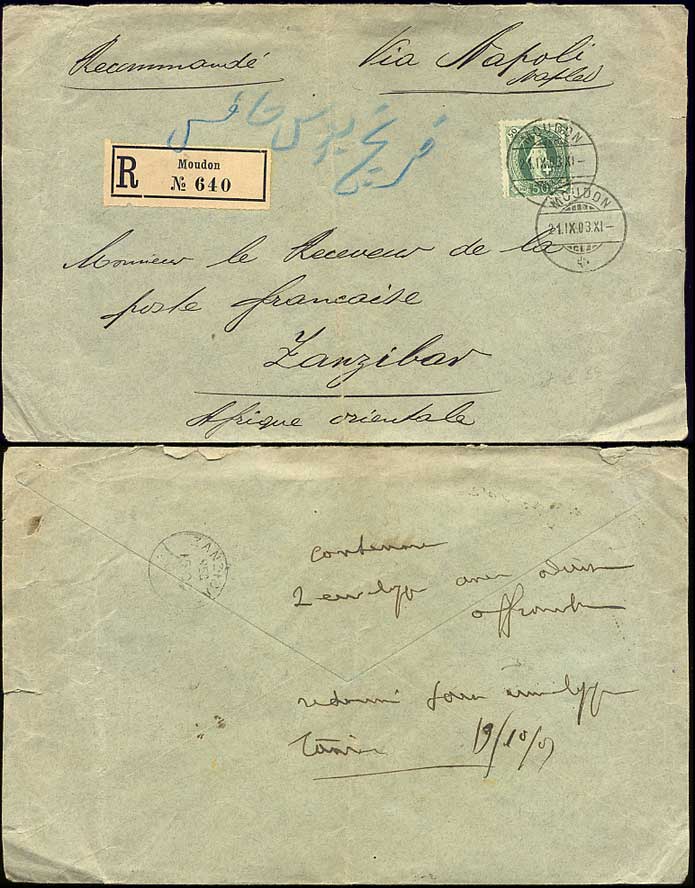 Recommandé
Via Napoli
Naples
فریخ پوس خافس
R Moudon
№ 640
50
MOUDON
21.IX.03.XI–
MOUDON
21.IX.03.XI–
Monsieur le Receveur de la
poste francaise
Zanzibar
Afrique orientale
ZANZIBAR
contenu
2 envelopp avec
19/10/03